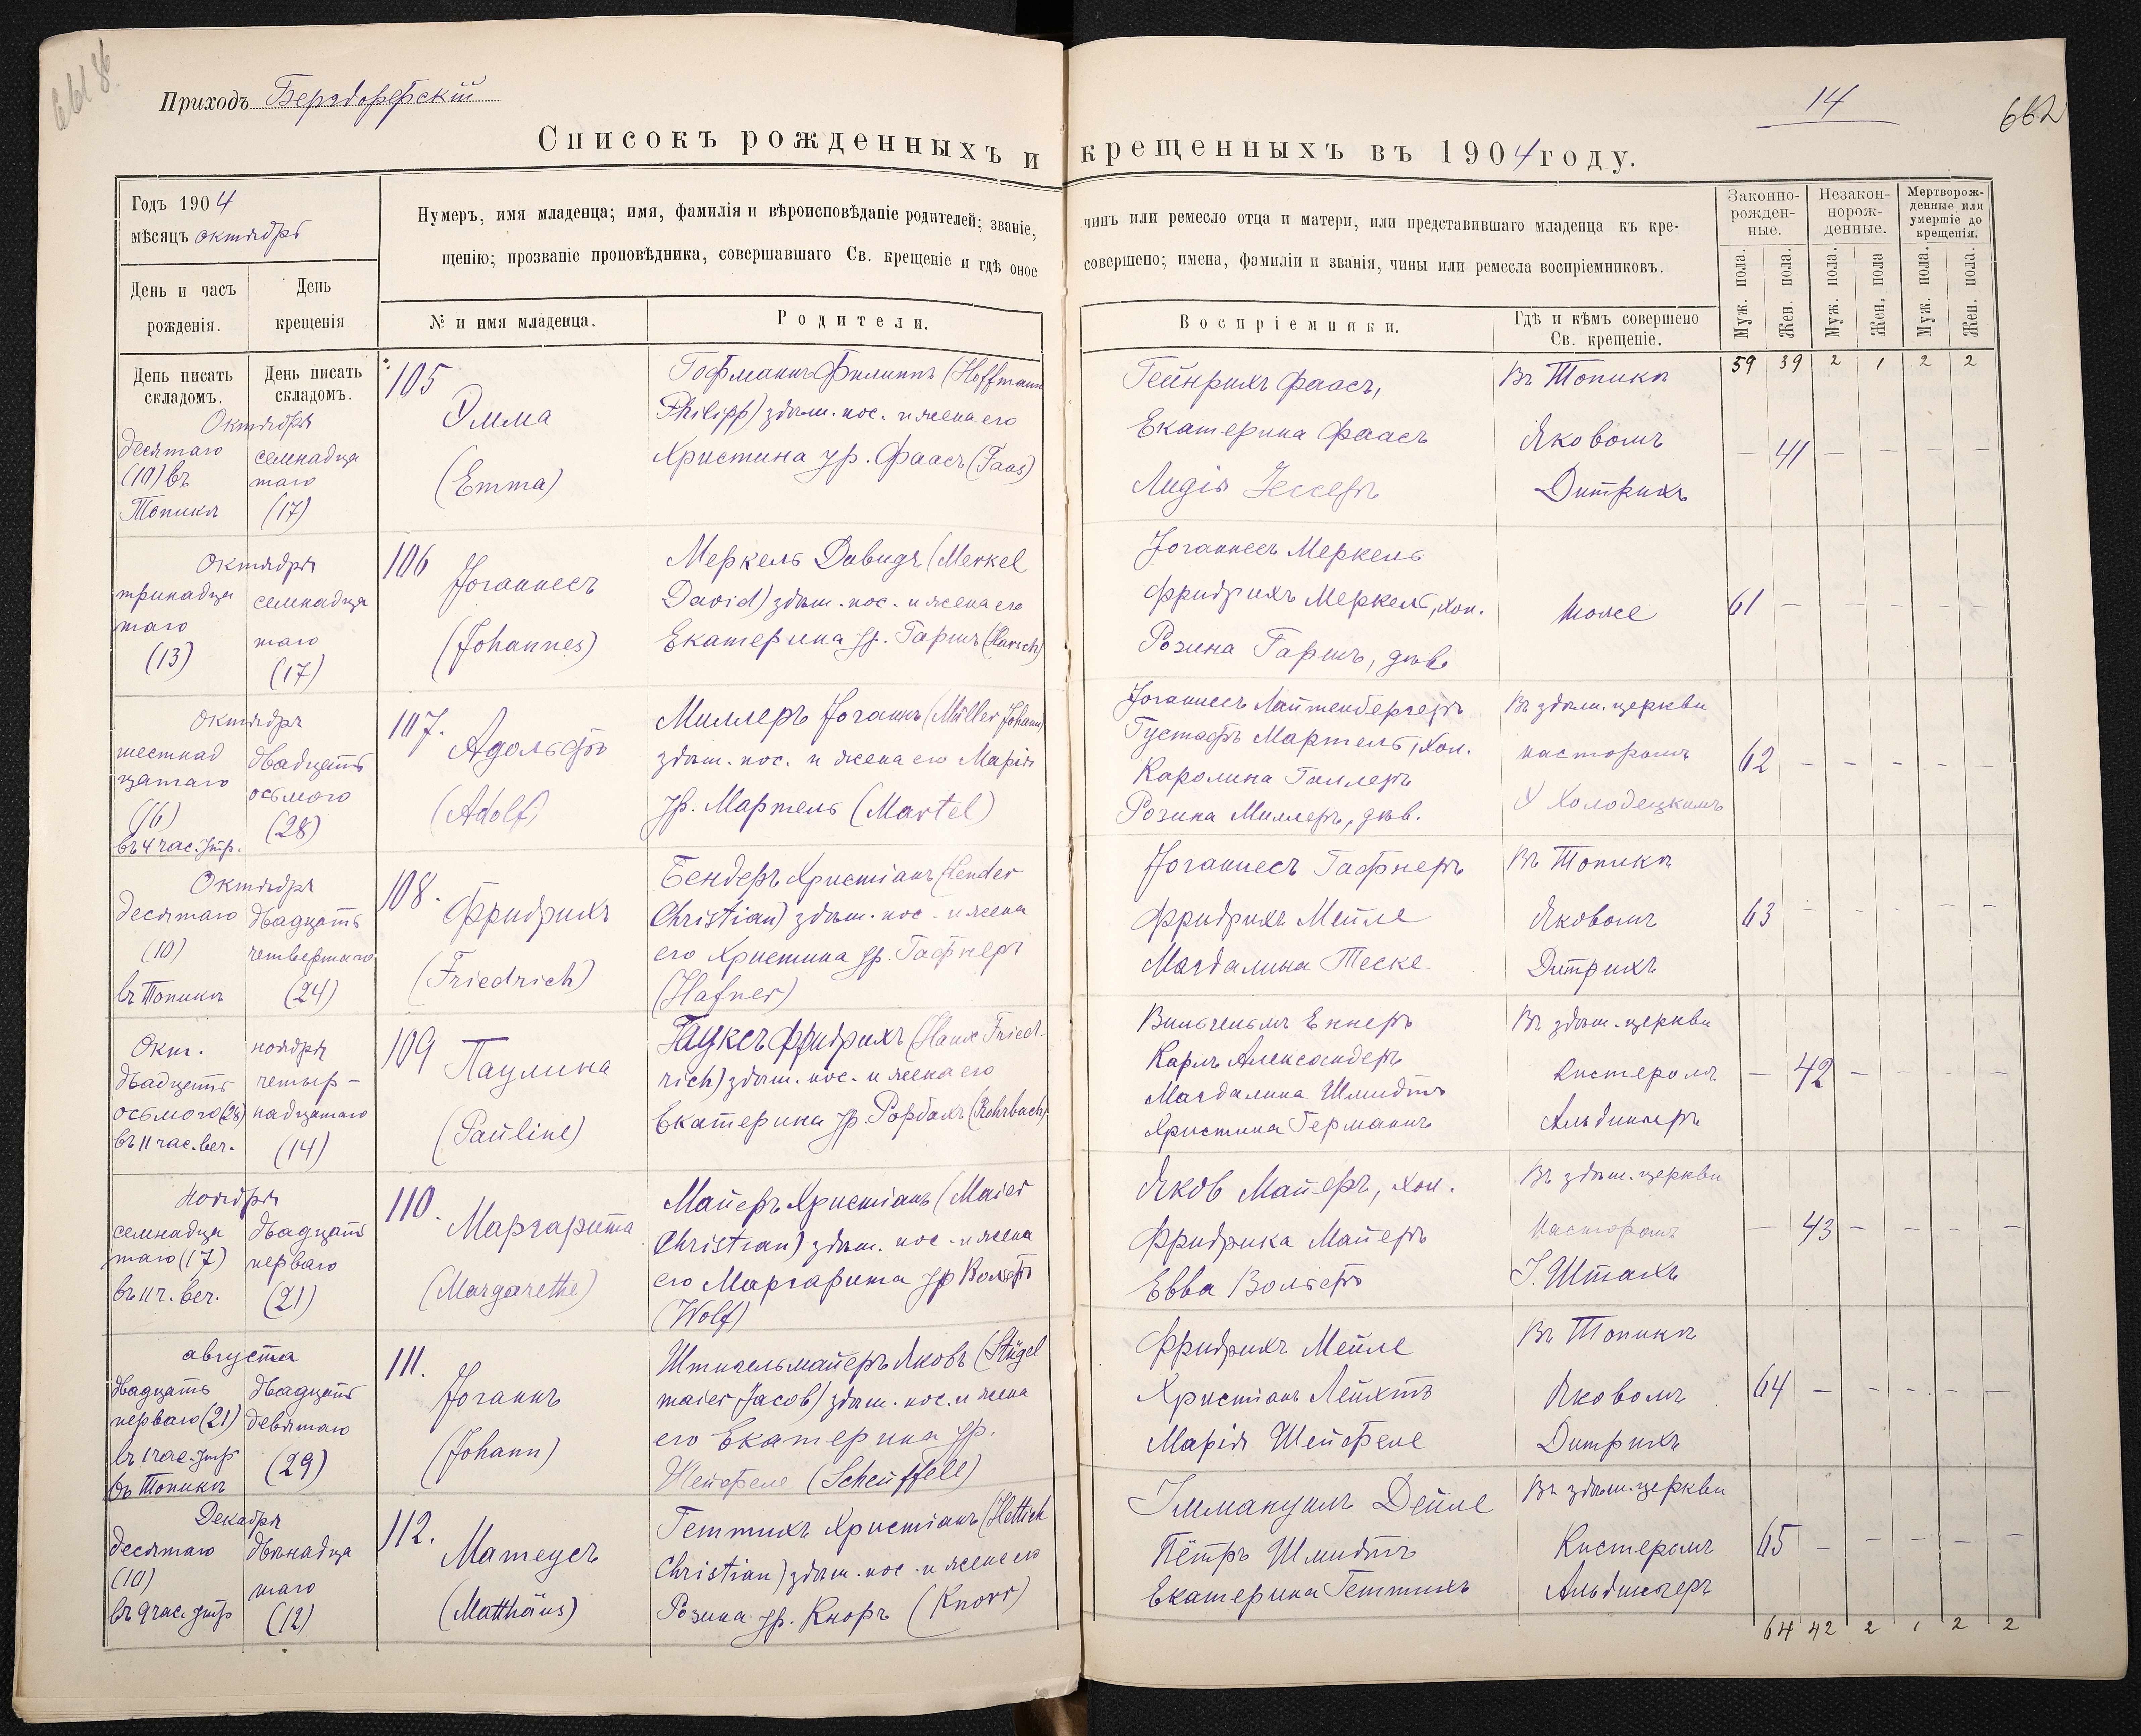 Приходъ Бергдорфскій
14
662
Списокъ рожденныхъ и крещенныхъ въ 1904 году.
Годъ 1904
мѣсяцъ октябрь
Нумеръ, имя младенца; имя, фамилія и вѣроисповѣданіе родителей; званіе, чинъ или ремесло отца и матери, или представившаго младенца къ кре-
щенію; прозваніе проповѣдника, совершавшаго Св. крещеніе и гдѣ оное совершено; имена, фамиліи и званія, чины или ремесла воспріемниковъ.
Законно-
рожден-
ные.
Незакон-
норож-
денные.
Мертворож-
денные или
умершіе до
крещенія.
День и часъ
рожденія.
День
крещенія
№ и имя младенца.
Родители.
Воспріемники.
Гдѣ и кѣмъ совершено
Св. крещеніе.
Муж. пола.
Жен. пола.
Муж. пола.
Жен. пола
Муж. пола.
Жен. пола.
День писать
складомъ.
День писать
складомъ.
59 39 2 1 2 2
Октября
десятаго
(10) въ
Топика
семнадца
таго
(17)
105
Эмма
(Emma)
Гофманъ Филиппъ (Hoffmann
Philipp) здѣш. пос. и жена его
Христина ур. Фаасъ (Faas)
Гейнрихъ Фаасъ,
Екатерина Фаасъ
Лидія
Въ Топика
Яковомъ
Дитрихъ
— 41 — — — —
Октября
тринадца
таго
(13)
семнадца
таго
(17)
106
Јоганнесъ
(Johannes)
Меркель Давидъ (Merkel
David) здѣш. пос. и жена его
Екатерина ур. Гаршъ (Harsch)
Јоганнесъ Меркель
Фридрихъ Меркель, хол.
Розина Гаршъ, дѣв.
тоже
61 — — — — —
Октября
шестнад
цатаго
(16)
въ 4 час. утр.
двадцать
осьмого
(28)
107.
Адольфъ
(Adolf)
Миллеръ Јоганъ (Müller Johann)
здѣш. пос. и жена его Марія
ур. Мартель (Martel)
Јоганнесъ Лайтенбергеръ
Густафъ Мартель, хол.
Каролина Гиллеръ
Розина Миллеръ, дѣв.
Въ здѣш. церкви
пасторомъ
Холодецкимъ
62 — — — — —
Октября
десятаго
(10)
въ Топика
двадцать
четвертаго
(24)
108.
Фридрихъ
(Friedrich)
Бендеръ Христіанъ (Bender
Christian) здѣш. пос. и жена
его Христина ур. Гафнеръ
(Hafner)
Јоганнесъ Гафнеръ
Фридрихъ Мейле
Магдалина Теске
Въ Топика
Яковомъ
Дитрихъ
63 — — — — —
Окт.
двадцать
осьмого (28)
въ 11 час. веч.
ноября
четыр-
надцатаго
(14)
109
Паулина
(Pauline)
Гауксъ Фридрихъ (Haux Fried-
rich) здѣш. пос. и жена его
Екатерина ур. Рорбахъ (Rohrbach)
Вильгельмъ Еннеръ
Карлъ Александеръ
Магдалина Шмидтъ
Христина Германъ
Въ здѣш. церкви
Кистеромъ
Альдингеръ
— 42 — — — —
Ноября
семнадца
таго (17)
въ 11 ч. веч.
двадцать
перваго
(21)
110.
Маргарита
(Margarethe)
Майеръ Христіанъ (Maier
Christian) здѣш. пос. и жена
его Маргарита ур. Вольфъ
(Wolf)
Яков Майеръ, хол.
Фридрика Майеръ
Евва Вольфъ
Въ здѣш. церкви
Пасторомъ
І. Штахъ
— 43 — — — —
августа
двадцать
перваго (21)
въ 1 час. утр
въ Топика
двадцать
девятаго
(29)
111.
Јоганъ
(Johann)
Штигельмайеръ Яковъ (Stügel
maier Jacob) здѣш. пос. и жена
его Екатерина ур.
Шейфеле (Scheuffele)
Фридрихъ Мейле
Христіанъ Лейхтъ
Марія Шейфеле
Въ Топика
Яковомъ
Дитрихъ
64 — — — — —
Декабря
десятаго
(10)
въ 9 час. утр
двѣнадца
таго
(12)
112.
Матеусъ
(Matthäus)
Геттихъ Христіанъ (Hettich
Christian) здѣш. пос. и жена его
Розина ур. Кноръ (Knorr)
Іммануилъ Дейле
Пётръ Шмидтъ
Екатерина Геттихъ
Въ здѣш. церкви
Кистеромъ
Альдингеръ
65 — — — — —
64 42 2 1 2 2